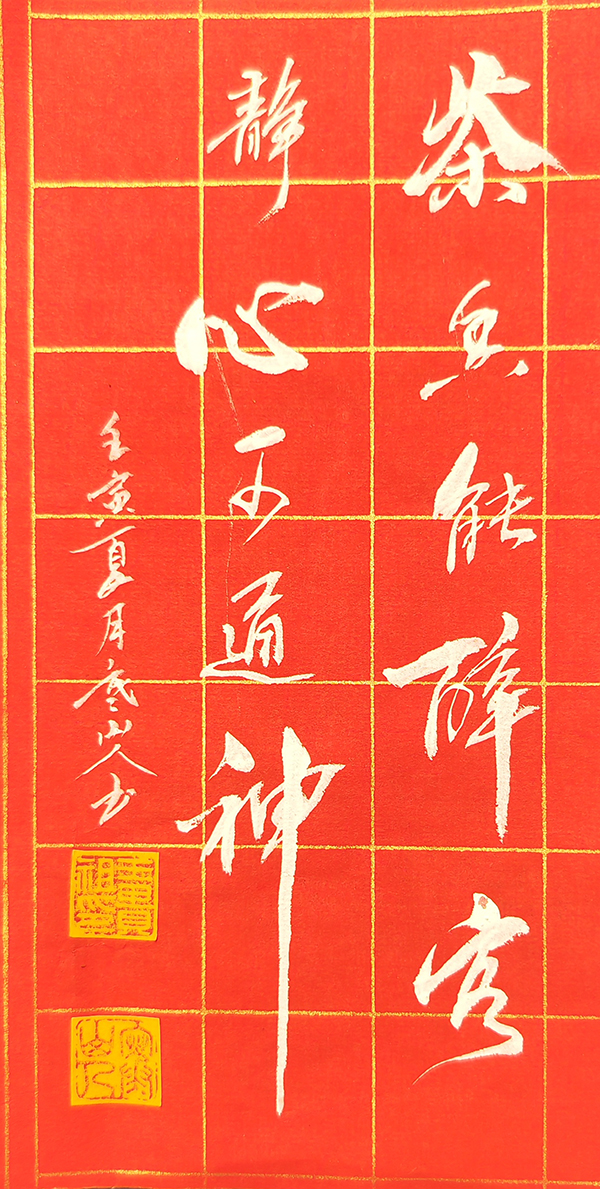 茶亦能醉客
静心可通神
壬寅夏月山人书